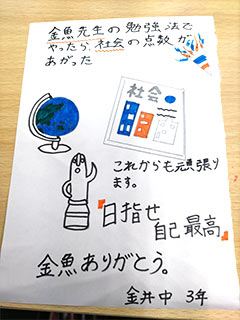 金魚先生の勉強法で
やったら、社会の点数が
あがった
社会
これからも頑張り
ます。
『目指せ
自己最高』
金魚ありがとう。
金井中 3年